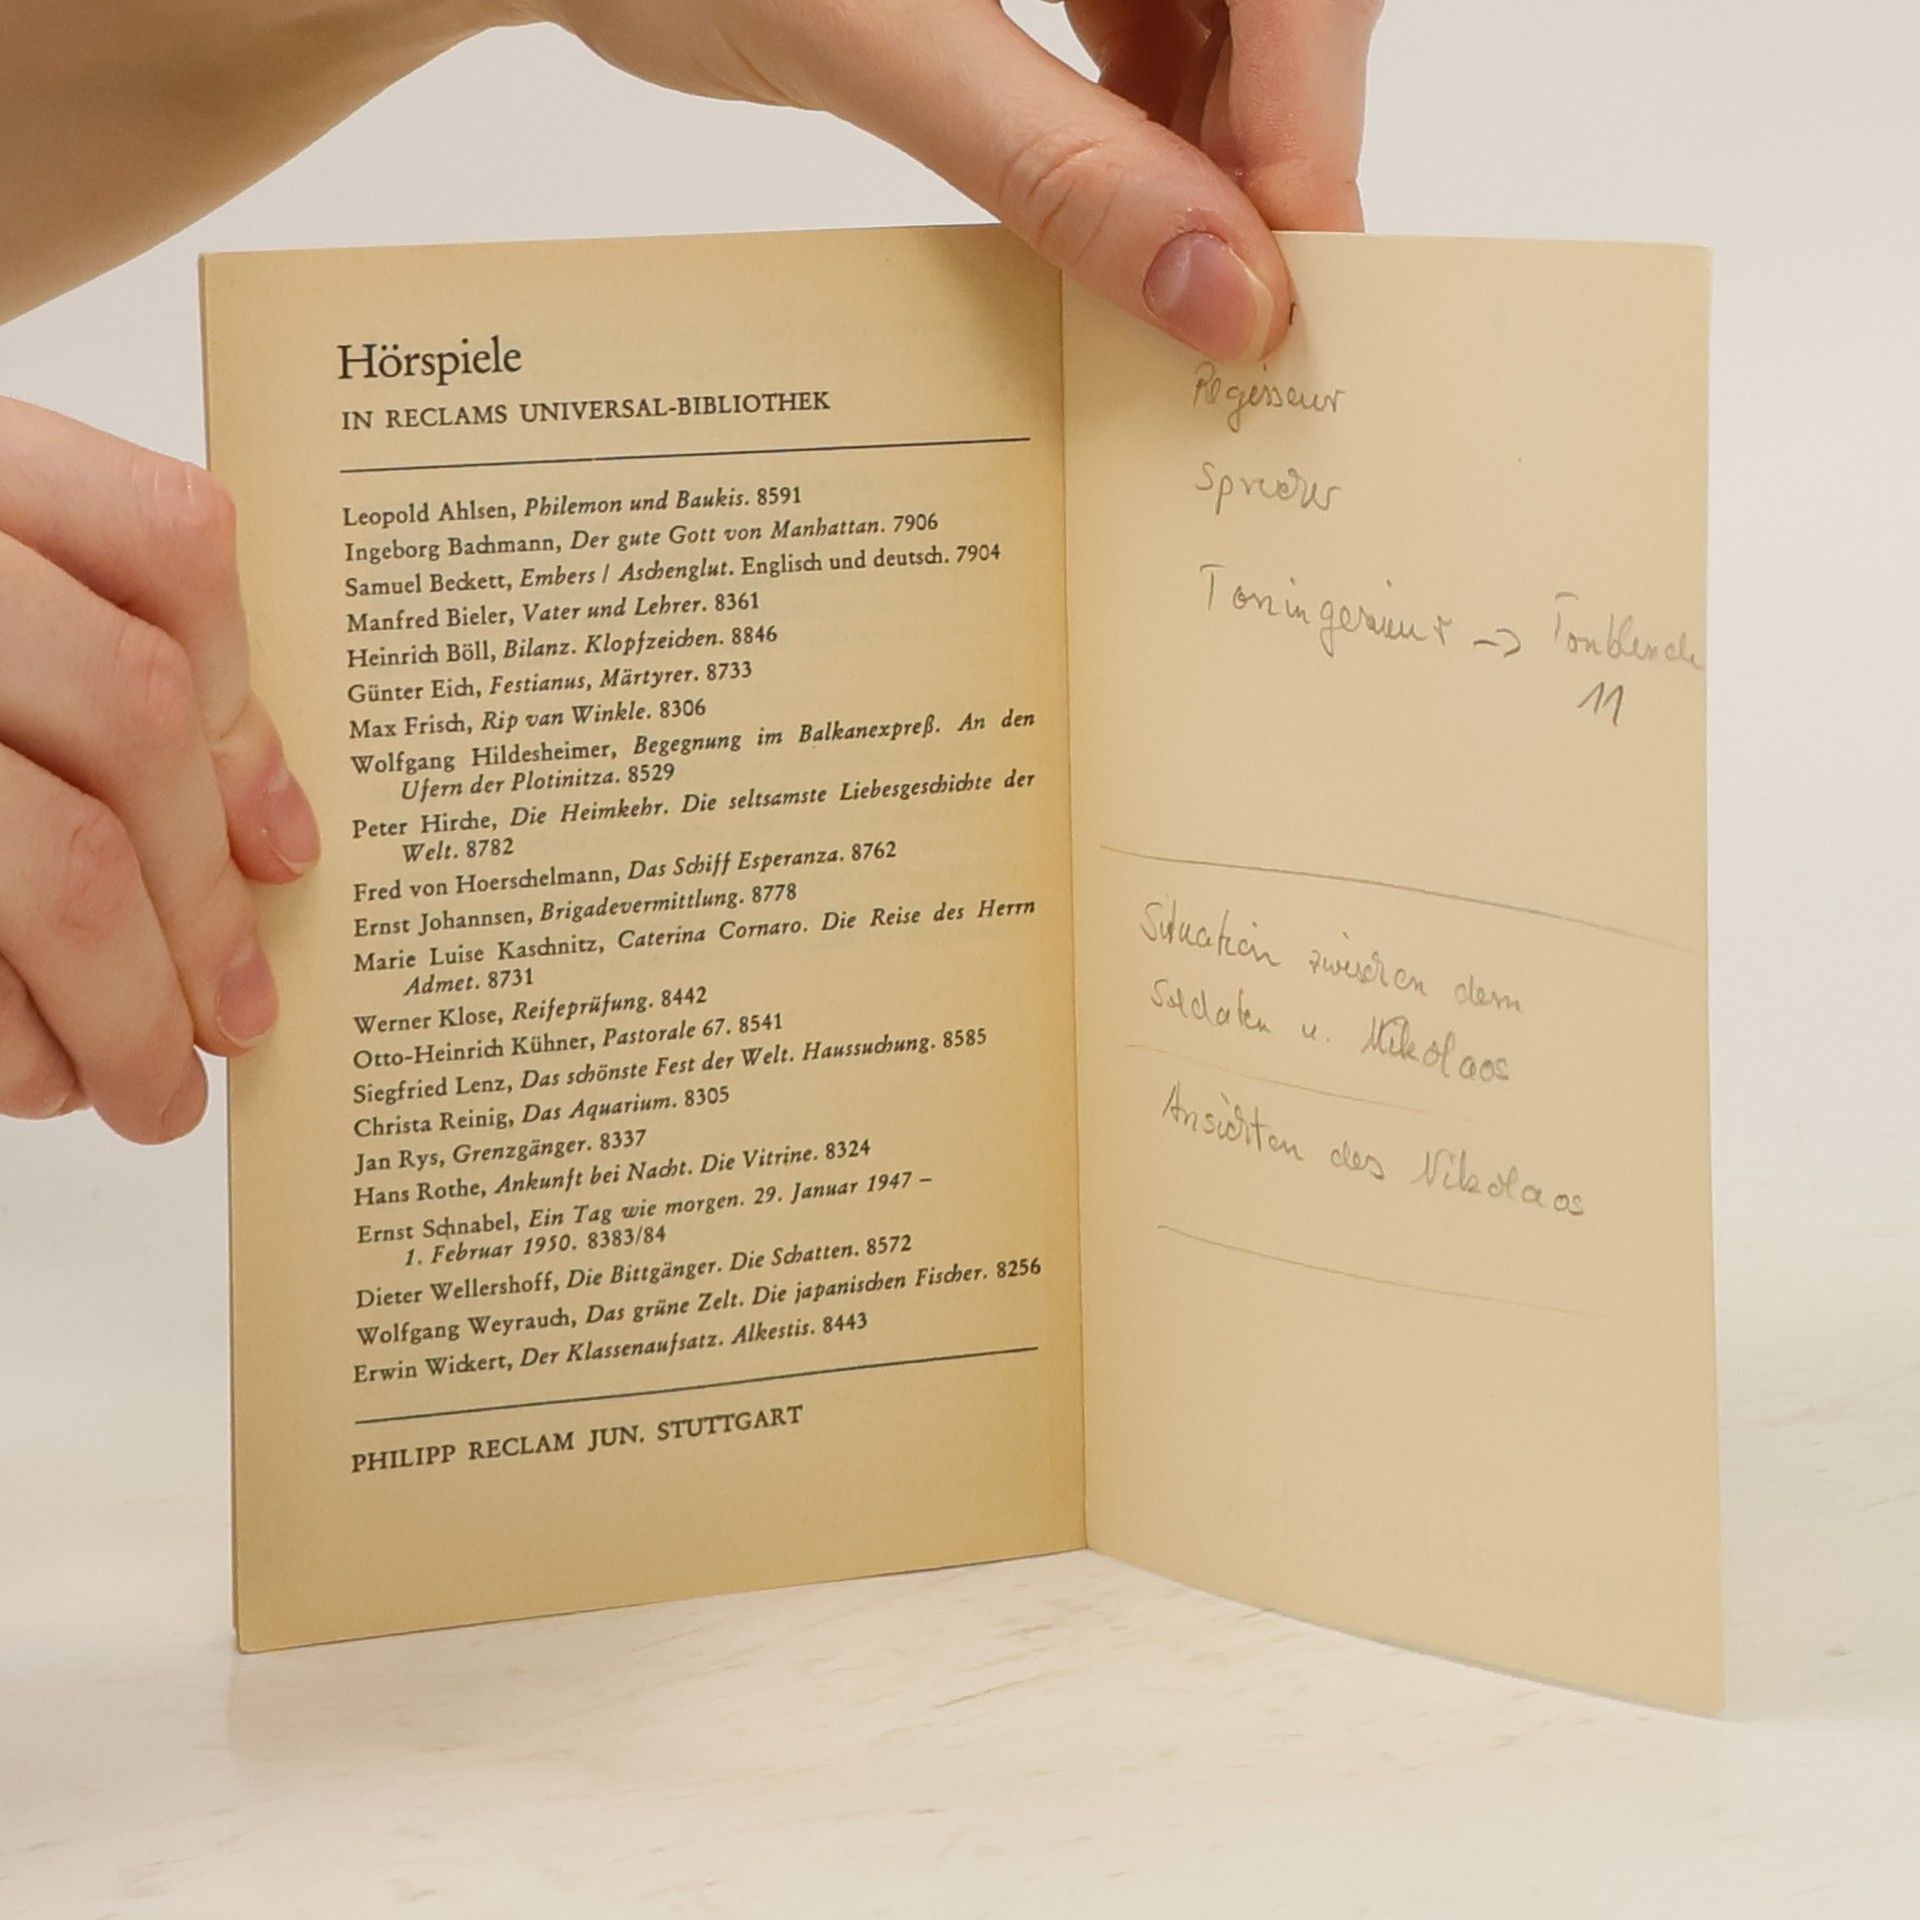 Hörspiele
IN RECLAMS UNIVERSAL-BIBLIOTHEK
Leopold Ahlsen, Philemon und Baukis. 8591
Ingeborg Bachmann, Der gute Gott von Manhattan. 7906
Samuel Beckett, Embers / Aschenglut. Englisch und deutsch. 7904
Manfred Bieler, Vater und Lehrer. 8361
Heinrich Böll, Bilanz. Klopfzeichen. 8846
Günter Eich, Festianus, Märtyrer. 8733
Max Frisch, Rip van Winkle. 8306
Wolfgang Hildesheimer, Begegnung im Balkanexpreß. An den
Ufern der Plotinitza. 8529
Peter Hirche, Die Heimkehr. Die seltsamste Liebesgeschichte der
Welt. 8782
Fred von Hoerschelmann, Das Schiff Esperanza. 8762
Ernst Johannsen, Brigadevermittlung. 8778
Marie Luise Kaschnitz, Caterina Cornaro. Die Reise des Herrn
Admet. 8731
Werner Klose, Reifeprüfung. 8442
Otto-Heinrich Kühner, Pastorale 67. 8541
Siegfried Lenz, Das schönste Fest der Welt. Haussuchung. 8585
Christa Reinig, Das Aquarium. 8305
Jan Rys, Grenzgänger. 8337
Hans Rothe, Ankunft bei Nacht. Die Vitrine. 8324
Ernst Schnabel, Ein Tag wie morgen. 29. Januar 1947 –
1. Februar 1950. 8383/84
Dieter Wellershoff, Die Bittgänger. Die Schatten. 8572
Wolfgang Weyrauch, Das grüne Zelt. Die japanischen Fischer. 8256
Erwin Wickert, Der Klassenaufsatz. Alkestis. 8443
PHILIPP RECLAM JUN. STUTTGART
Regisseur
Sprecher
Toningenieur -> Tonblende
11
Situation zwischen dem
Soldaten u. Nikolaos
Ansichten des Nikolaos